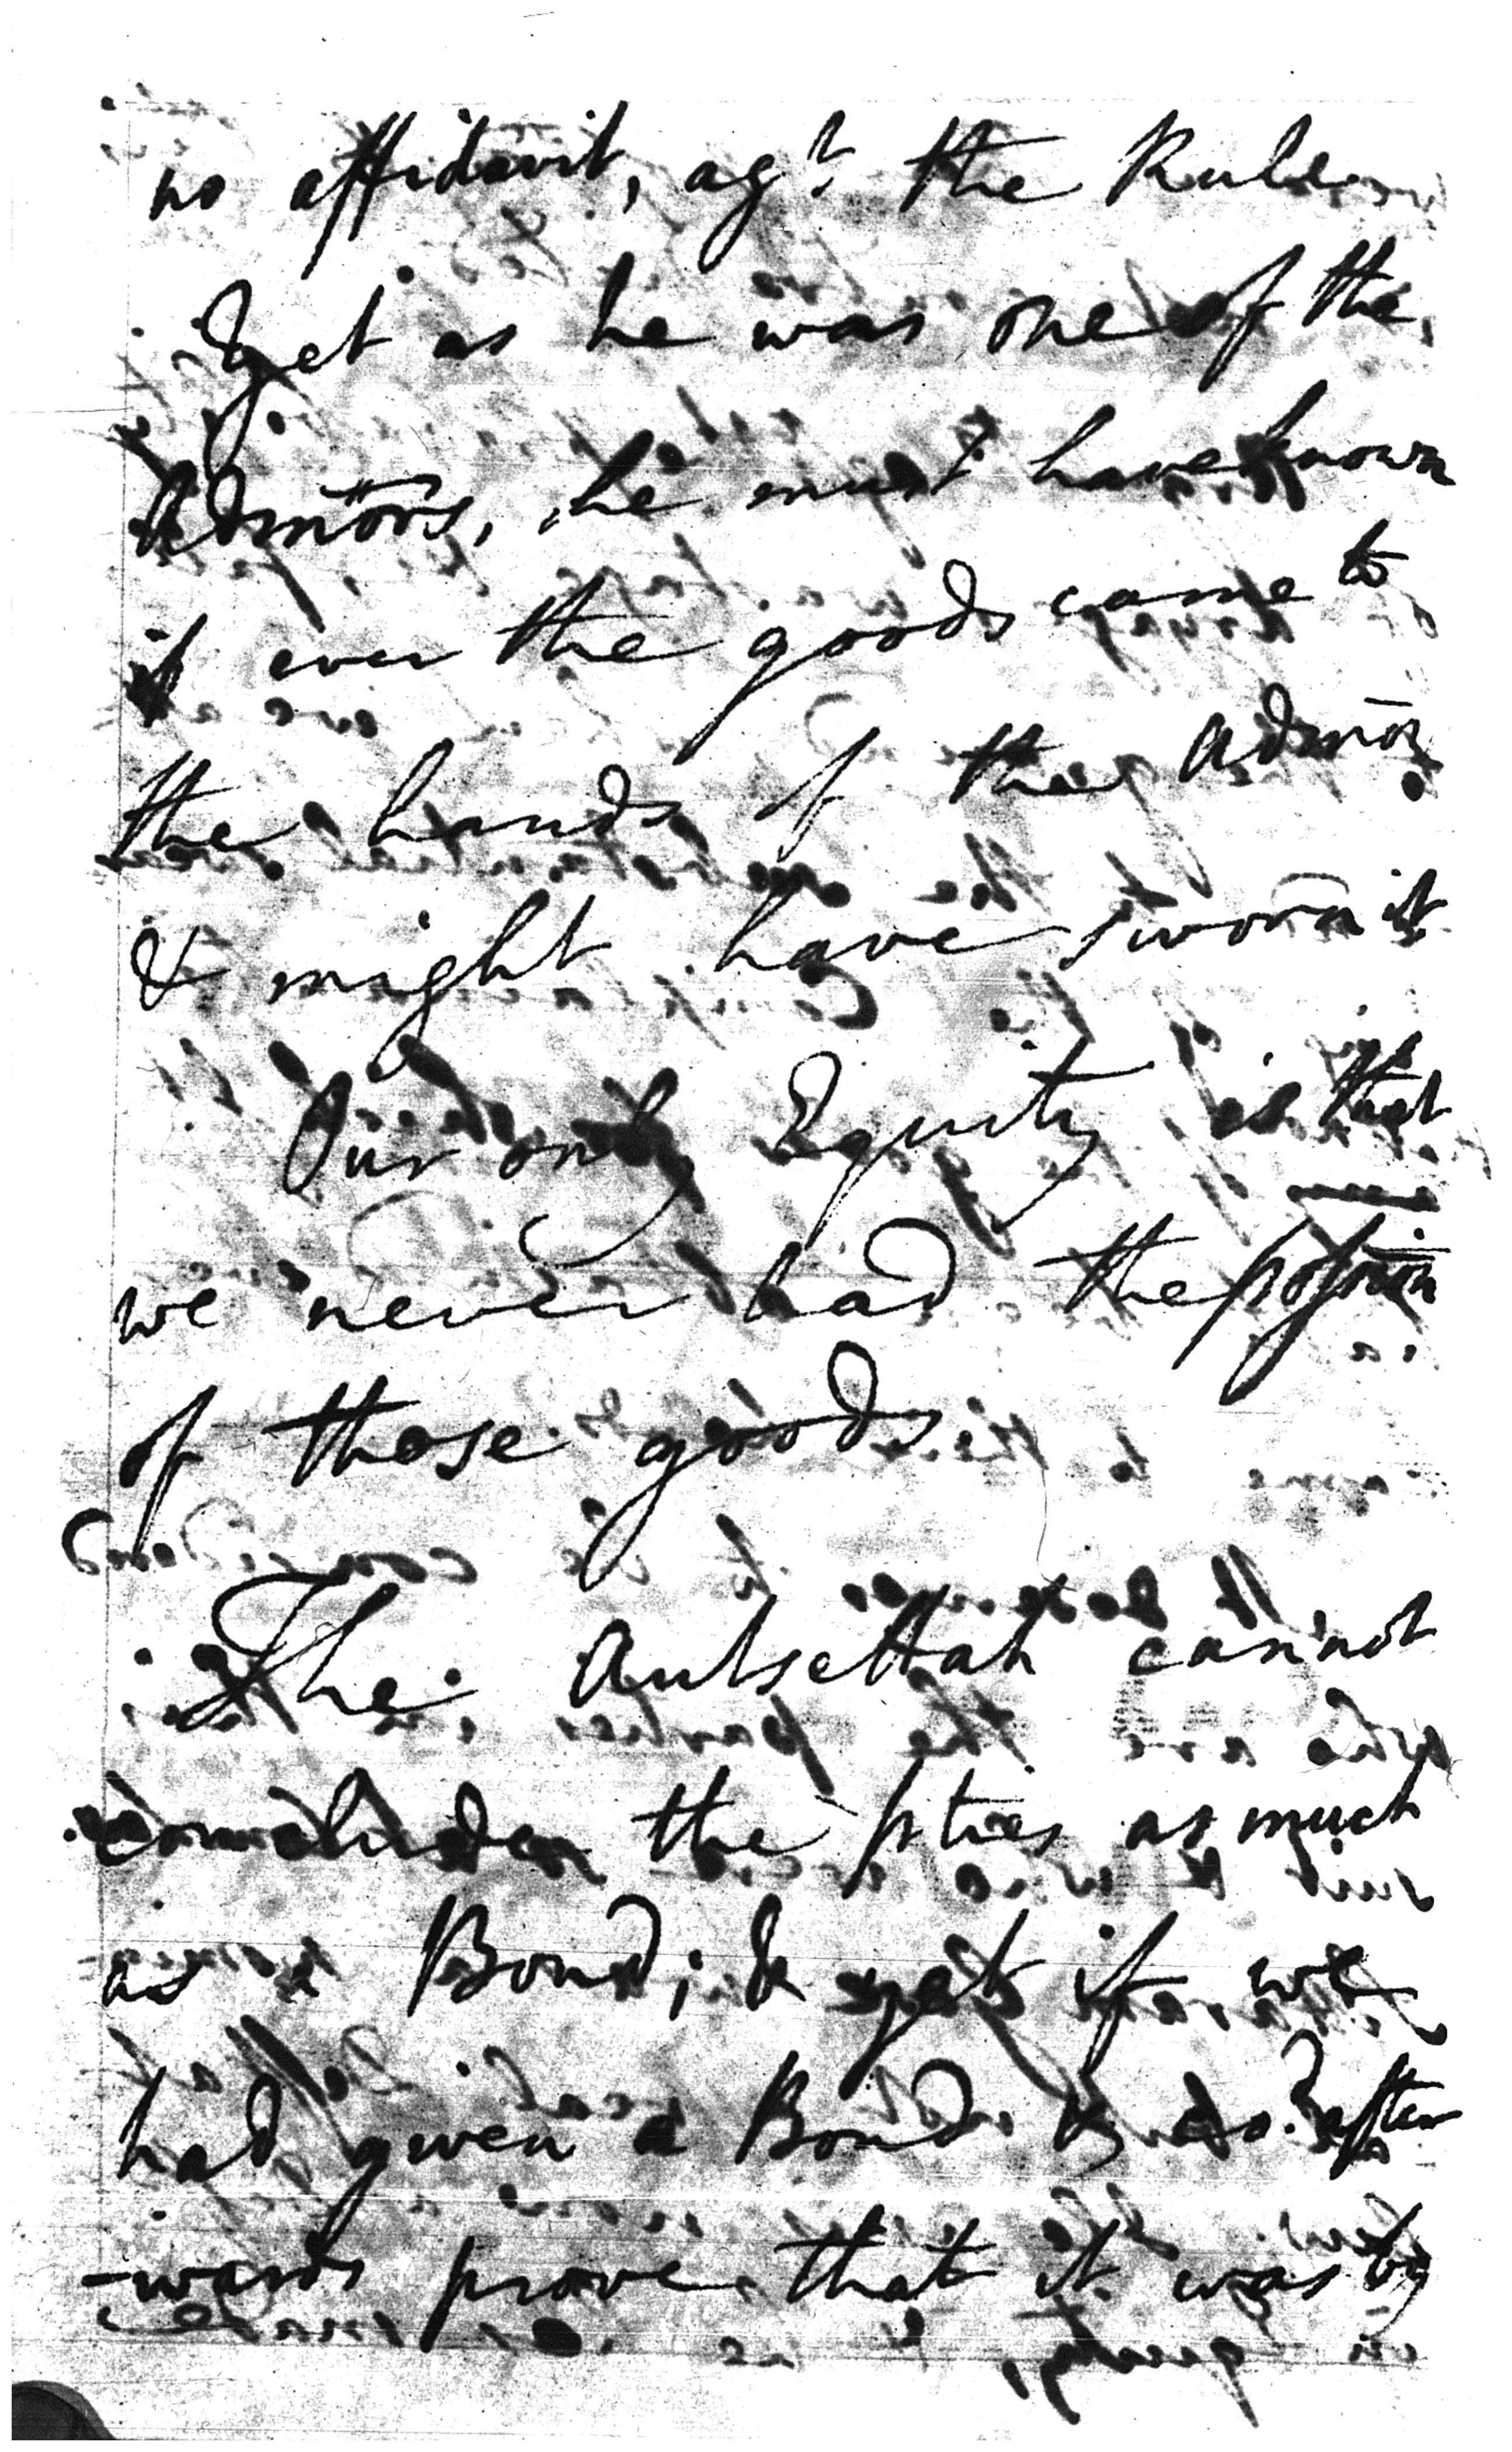 no affidavit, agt the Rule
Yet as he was one of the
Admōrs, he must have known
if ever the goods came to
the hands of the Admōr
& might have sworn it
Our only Equity is that
we never had the possion
of those goods
The Autsettah cannot
conclude the pties as much
as a Bond; & yet if we
had given a Bond & do after
-wards prove that it was by